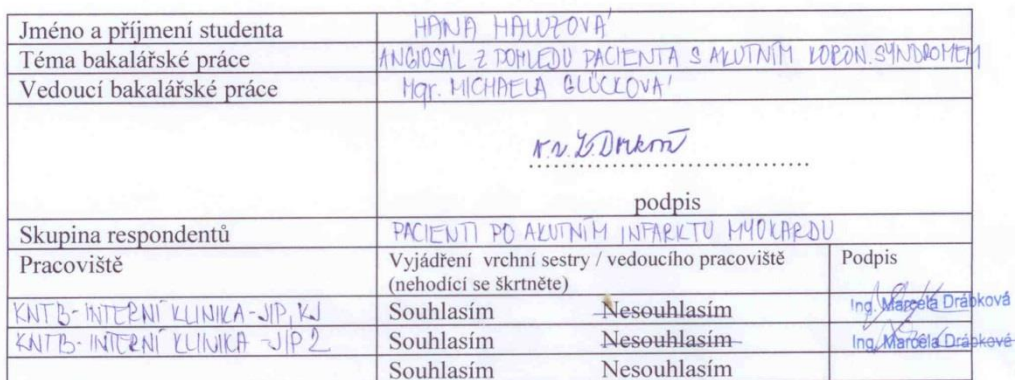 Jméno a příjmení studenta HANA HAUZOVÁ
Téma bakalářské práce ANGIOSÁL Z POHLEDU PACIENTA S AKUTNÍM KORON. SYNDROMEM
Vedoucí bakalářské práce Mgr. MICHAELA GLÜCKOVÁ
podpis
Skupina respondentů PACIENTI PO AKUTNÍM INFARKTU MYOKARDU
Pracoviště Vyjádření vrchní sestry / vedoucího pracoviště Podpis
(nehodící se škrtněte)
KNTB-INTERNÍ KLINIKA-JIP, KJ Souhlasím Nesouhlasím Ing. Marcela Drábková
KNTB-INTERNÍ KLINIKA-JIP 2 Souhlasím Nesouhlasím Ing. Marcela Drábková
Souhlasím Nesouhlasím